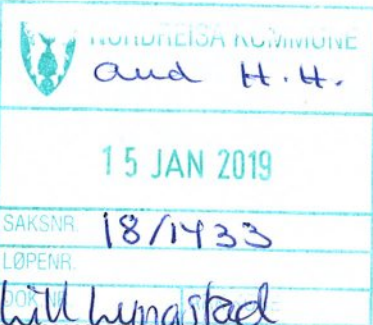 NORDREISA KOMMUNE
Aud H.H.
15 JAN 2019
SAKSNR. 18/1433
LØPENR.
DOK.NR.
Lill Lyngstad